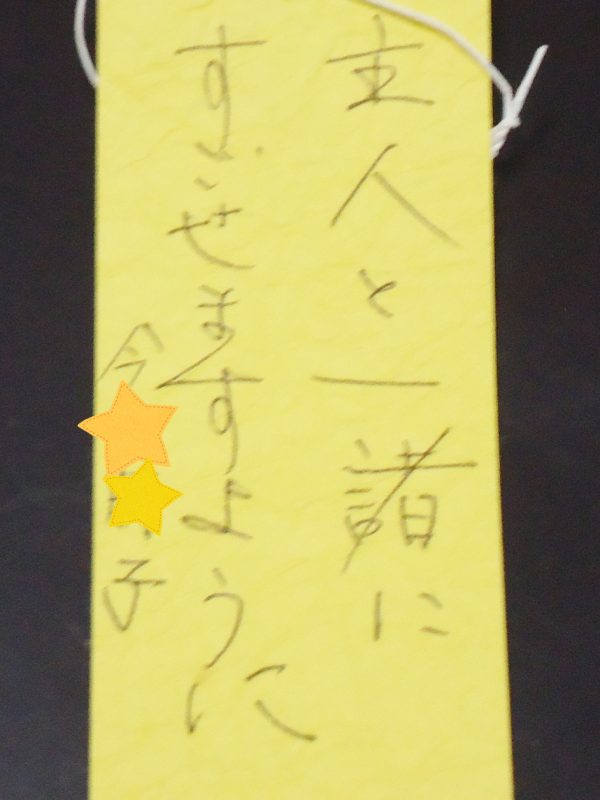 主人と一諸に
すごせますように
今 子